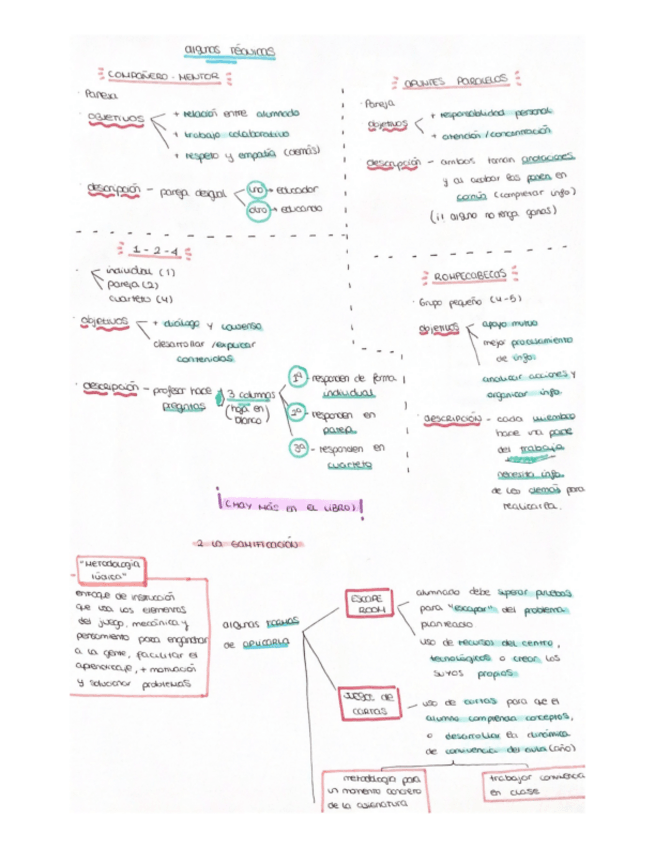 algunas técnicas
COMPAÑERO - MENTOR
· Pareja
· objetivos
+ relación entre alumnado
+ trabajo colaborativo
+ respeto y empatía (demás)
· descripción - pareja desigual
uno → educador
otro → educando
APUNTES PARALELOS
· Pareja
objetivos
+ responsabilidad personal
+ atención / concentración
descripción - ambos toman anotaciones
y al acabar las ponen en
común (completar info)
(¡! alguno no tenga ganas)
1 - 2 - 4
individual (1)
pareja (2)
cuarteto (4)
· objetivos
+ diálogo y consenso
desarrollar / explicar
contenidos
· descripción - profesor hace
preguntas
3 columnas
(hoja en)
blanco
1º - responden de forma
individual
2º - responden en
pareja
3º - responden en
cuarteto
ROMPECABEZAS
· Grupo pequeño (4-5)
objetivos
apoyo mutuo
mejor procesamiento
de info.
analizar acciones y
organizar info
· descripción - cada miembro
hace una parte
del trabajo
necesita info.
de los demás para
realizarla.
¡(HAY MÁS EN EL LIBRO)!
2 LA GAMIFICACIÓN
"Metodología
lúdica"
enfoque de instrucción
que usa los elementos
del juego, mecánica y
pensamiento para enganchar
a la gente, facilitar el
aprendizaje, + motivación
y solucionar problemas
algunas formas
de aplicarla
ESCAPE
ROOM
alumnado debe superar pruebas
para "escapar" del problema
planteado
uso de recursos del centro,
tecnológicos o crear los
suyos propios
JUEGOS DE
CARTAS
uso de cartas para que el
alumno comprenda conceptos,
o desarrollar la dinámica
de convivencia del aula (año)
metodología para
un momento concreto
de la asignatura
trabajar convivencia
en clase